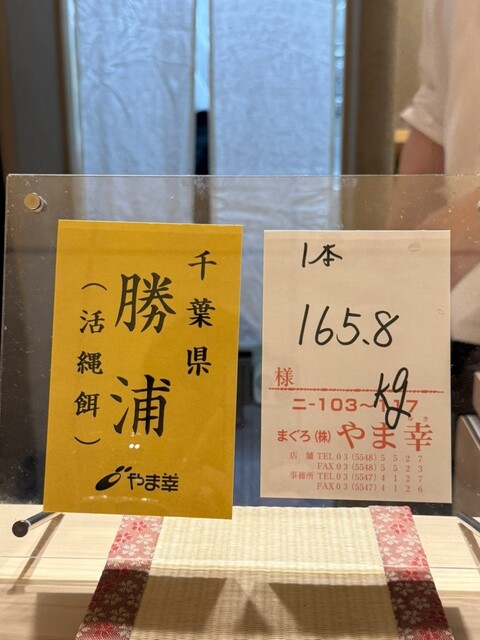 千葉県
勝浦
（活縄餌）
やま幸
1本
165.8
kg
様
ニ-103〜117
まぐろ(株)やま幸
店舗 TEL 03(5548)5527
FAX 03(5548)5523
事務所 TEL 03(5547)4127
FAX 03(5547)4126